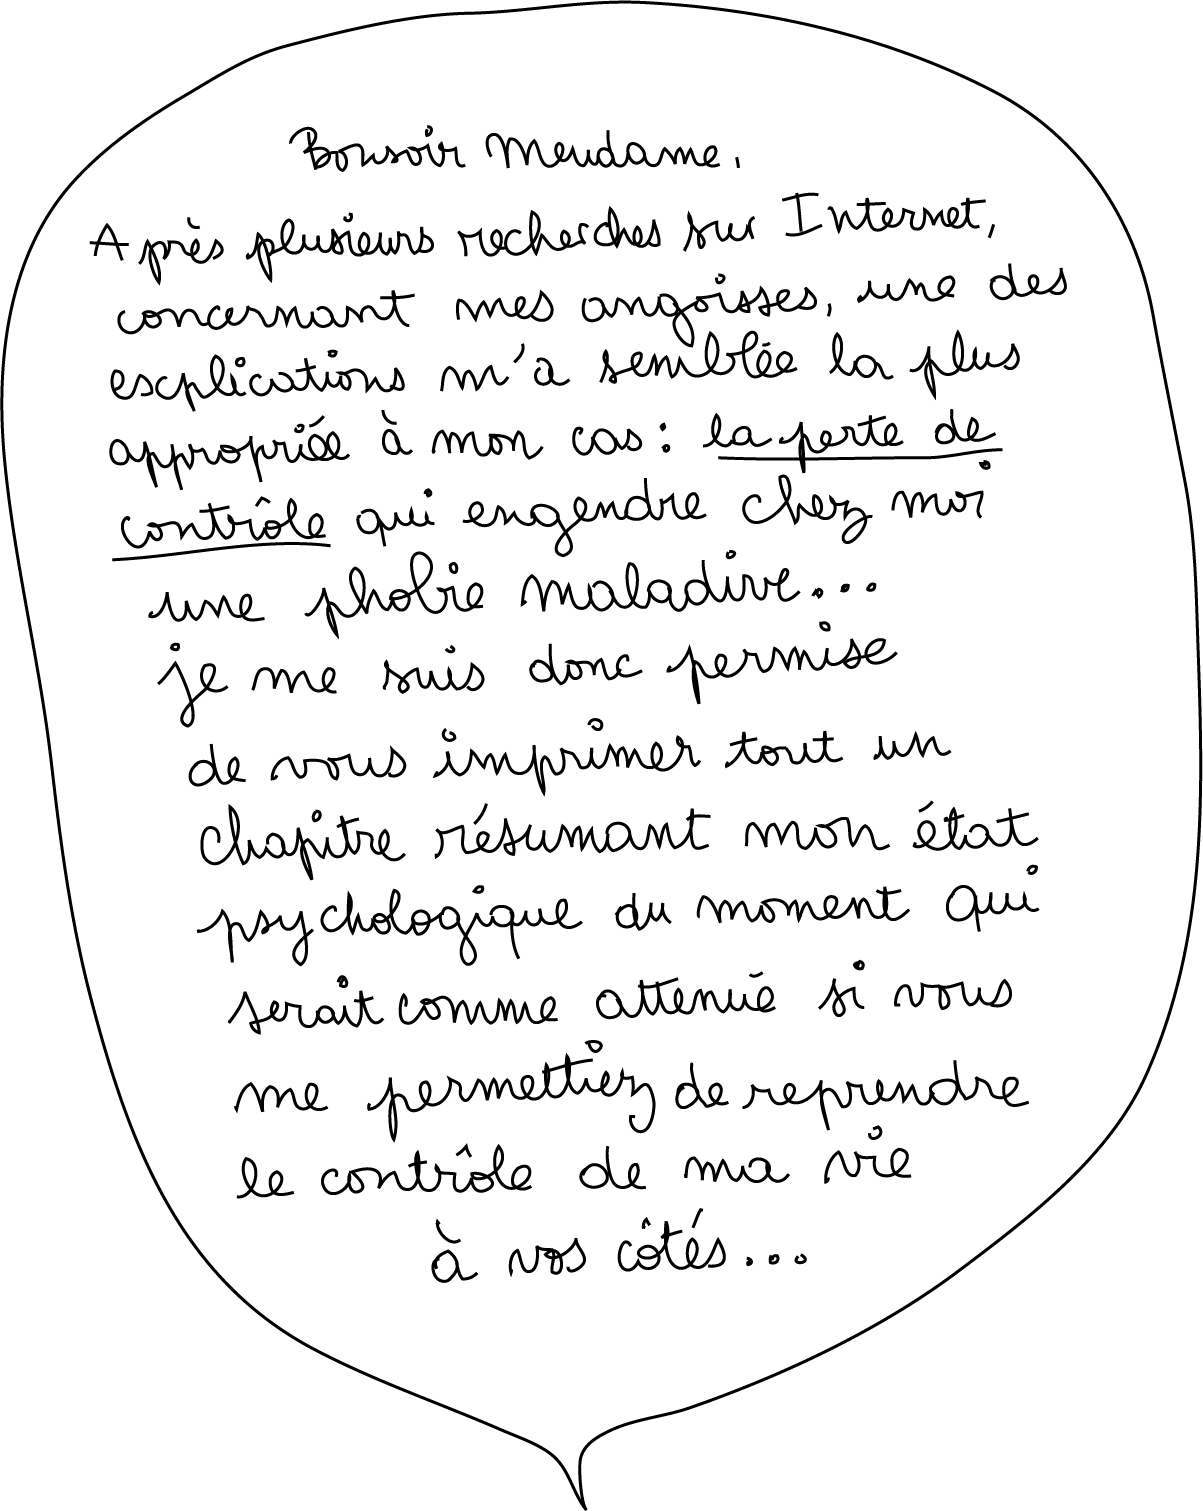 Bonsoir Meudame,
Après plusieurs recherches sur Internet,
concernant mes angoisses, une des
explications m'a semblée la plus
appropriée à mon cas : la perte de
contrôle qui engendre chez moi
une phobie maladive...
je me suis donc permise
de vous imprimer tout un
chapitre résumant mon état
psychologique du moment qui
serait comme attenué si vous
me permettiez de reprendre
le contrôle de ma vie
à vos côtés...